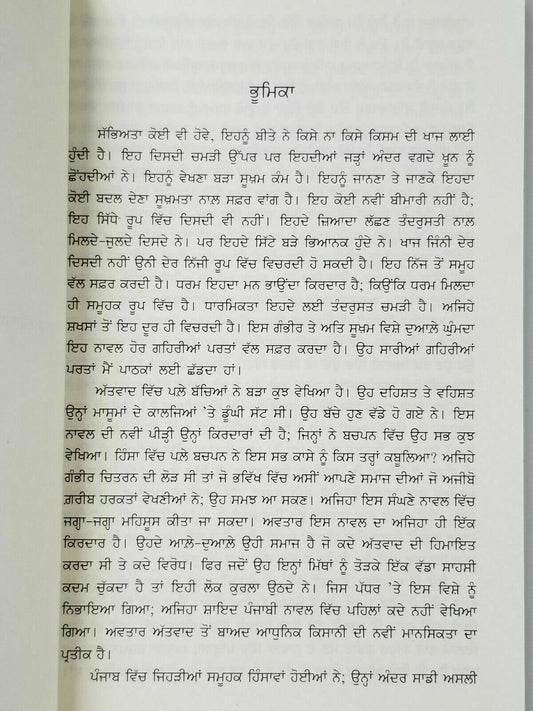 ਭੂਮਿਕਾ
ਸੱਭਿਅਤਾ ਕੋਈ ਵੀ ਹੋਵੇ, ਇਹਨੂੰ ਬੀਤੇ ਨੇ ਕਿਸੇ ਨਾ ਕਿਸੇ ਕਿਸਮ ਦੀ ਖਾਜ ਲਾਈ
ਹੁੰਦੀ ਹੈ। ਇਹ ਦਿਸਦੀ ਚਮੜੀ ਉੱਪਰ ਪਰ ਇਹਦੀਆਂ ਜੜ੍ਹਾਂ ਅੰਦਰ ਵਗਦੇ ਖੂਨ ਨੂੰ
ਛੋਂਹਦੀਆਂ ਨੇ। ਇਹਨੂੰ ਵੇਖਣਾ ਬੜਾ ਸੂਖ਼ਮ ਕੰਮ ਹੈ। ਇਹਨੂੰ ਜਾਨਣਾ ਤੇ ਜਾਣਕੇ ਇਹਦਾ
ਕੋਈ ਬਦਲ ਦੇਣਾ ਸੂਖਮਤਾ ਨਾਲ਼ ਸਫ਼ਰ ਵਾਂਗ ਹੈ। ਇਹ ਕੋਈ ਨਵੀਂ ਬੀਮਾਰੀ ਨਹੀਂ ਹੈ;
ਇਹ ਸਿੱਧੇ ਰੂਪ ਵਿੱਚ ਦਿਸਦੀ ਵੀ ਨਹੀਂ। ਇਹਦੇ ਜ਼ਿਆਦਾ ਲੱਛਣ ਤੰਦਰੁਸਤੀ ਨਾਲ਼
ਮਿਲਦੇ-ਜੁਲਦੇ ਦਿਸਦੇ ਨੇ। ਪਰ ਇਹਦੇ ਸਿੱਟੇ ਬੜੇ ਭਿਆਨਕ ਹੁੰਦੇ ਨੇ। ਖਾਜ ਜਿੰਨੀ ਦੇਰ
ਦਿਸਦੀ ਨਹੀਂ ਉਨੀ ਦੇਰ ਨਿੱਜੀ ਰੂਪ ਵਿੱਚ ਵਿਚਰਦੀ ਹੋ ਸਕਦੀ ਹੈ। ਇਹ ਨਿੱਜ ਤੋਂ ਸਮੂਹ
ਵੱਲ ਸਫ਼ਰ ਕਰਦੀ ਹੈ। ਧਰਮ ਇਹਦਾ ਮਨ ਭਾਉਂਦਾ ਕਿਰਦਾਰ ਹੈ; ਕਿਉਂਕਿ ਧਰਮ ਮਿਲਦਾ
ਹੀ ਸਮੂਹਕ ਰੂਪ ਵਿੱਚ ਹੈ। ਧਾਰਮਿਕਤਾ ਇਹਦੇ ਲਈ ਤੰਦਰੁਸਤ ਚਮੜੀ ਹੈ। ਅਜਿਹੇ
ਸ਼ਖ਼ਸਾਂ ਤੋਂ ਇਹ ਦੂਰ ਹੀ ਵਿਚਰਦੀ ਹੈ। ਇਸ ਗੰਭੀਰ ਤੇ ਅਤਿ ਸੂਖ਼ਮ ਵਿਸ਼ੇ ਦੁਆਲ਼ੇ ਘੁੰਮਦਾ
ਇਹ ਨਾਵਲ ਹੋਰ ਗਹਿਰੀਆਂ ਪਰਤਾਂ ਵੱਲ ਸਫ਼ਰ ਕਰਦਾ ਹੈ। ਉਹ ਸਾਰੀਆਂ ਗਹਿਰੀਆਂ
ਪਰਤਾਂ ਮੈਂ ਪਾਠਕਾਂ ਲਈ ਛੱਡਦਾ ਹਾਂ।
ਅੱਤਵਾਦ ਵਿੱਚ ਪਲ਼ੇ ਬੱਚਿਆਂ ਨੇ ਬੜਾ ਕੁਝ ਵੇਖਿਆ ਹੈ। ਉਹ ਦਹਿਸ਼ਤ ਤੇ ਵਹਿਸ਼ਤ
ਉਨ੍ਹਾਂ ਮਾਸੂਮਾਂ ਦੇ ਕਾਲਜਿਆਂ 'ਤੇ ਡੂੰਘੀ ਸੱਟ ਸੀ। ਉਹ ਬੱਚੇ ਹੁਣ ਵੱਡੇ ਹੋ ਗਏ ਨੇ। ਇਸ
ਨਾਵਲ ਦੀ ਨਵੀਂ ਪੀੜ੍ਹੀ ਉਨ੍ਹਾਂ ਕਿਰਦਾਰਾਂ ਦੀ ਹੈ; ਜਿਨ੍ਹਾਂ ਨੇ ਬਚਪਨ ਵਿੱਚ ਉਹ ਸਭ ਕੁਝ
ਵੇਖਿਆ। ਹਿੰਸਾ ਵਿੱਚ ਪਲ਼ੇ ਬਚਪਨ ਨੇ ਇਸ ਸਭ ਕਾਸੇ ਨੂੰ ਕਿਸ ਤਰ੍ਹਾਂ ਕਬੂਲਿਆ? ਅਜਿਹੇ
ਗੰਭੀਰ ਚਿਤਰਨ ਦੀ ਲੋੜ ਸੀ ਤਾਂ ਜੋ ਭਵਿੱਖ ਵਿੱਚ ਅਸੀਂ ਆਪਣੇ ਸਮਾਜ ਦੀਆਂ ਜੋ ਅਜੀਬੋ
ਗ਼ਰੀਬ ਹਰਕਤਾਂ ਵੇਖਣੀਆਂ ਨੇ; ਉਹ ਸਮਝ ਆ ਸਕਣ। ਅਜਿਹਾ ਇਸ ਸੰਘਣੇ ਨਾਵਲ ਵਿੱਚ
ਜਗ੍ਹਾ-ਜਗ੍ਹਾ ਮਹਿਸੂਸ ਕੀਤਾ ਜਾ ਸਕਦਾ। ਅਵਤਾਰ ਇਸ ਨਾਵਲ ਦਾ ਅਜਿਹਾ ਹੀ ਇੱਕ
ਕਿਰਦਾਰ ਹੈ। ਉਹਦੇ ਆਲ਼ੇ-ਦੁਆਲ਼ੇ ਉਹੀ ਸਮਾਜ ਹੈ ਜੋ ਕਦੇ ਅੱਤਵਾਦ ਦੀ ਹਿਮਾਇਤ
ਕਰਦਾ ਸੀ ਤੇ ਕਦੇ ਵਿਰੋਧ। ਫਿਰ ਜਦੋਂ ਉਹ ਇਨ੍ਹਾਂ ਮਿੱਥਾਂ ਨੂੰ ਤੋੜਕੇ ਇੱਕ ਵੱਡਾ ਸਾਹਸੀ
ਕਦਮ ਚੁੱਕਦਾ ਹੈ ਤਾਂ ਇਹੀ ਲੋਕ ਕੁਰਲਾ ਉਠਦੇ ਨੇ। ਜਿਸ ਪੱਧਰ 'ਤੇ ਇਸ ਵਿਸ਼ੇ ਨੂੰ
ਨਿਭਾਇਆ ਗਿਆ; ਅਜਿਹਾ ਸ਼ਾਇਦ ਪੰਜਾਬੀ ਨਾਵਲ ਵਿੱਚ ਪਹਿਲਾਂ ਕਦੇ ਨਹੀਂ ਵੇਖਿਆ
ਗਿਆ। ਅਵਤਾਰ ਅੱਤਵਾਦ ਤੋਂ ਬਾਅਦ ਆਧੁਨਿਕ ਕਿਸਾਨੀ ਦੀ ਨਵੀਂ ਮਾਨਸਿਕਤਾ ਦਾ
ਪ੍ਰਤੀਕ ਹੈ।
ਪੰਜਾਬ ਵਿੱਚ ਜਿਹੜੀਆਂ ਸਮੂਹਕ ਹਿੰਸਾਵਾਂ ਹੋਈਆਂ ਨੇ; ਉਨ੍ਹਾਂ ਅੰਦਰ ਸਾਡੀ ਅਸਲੀ